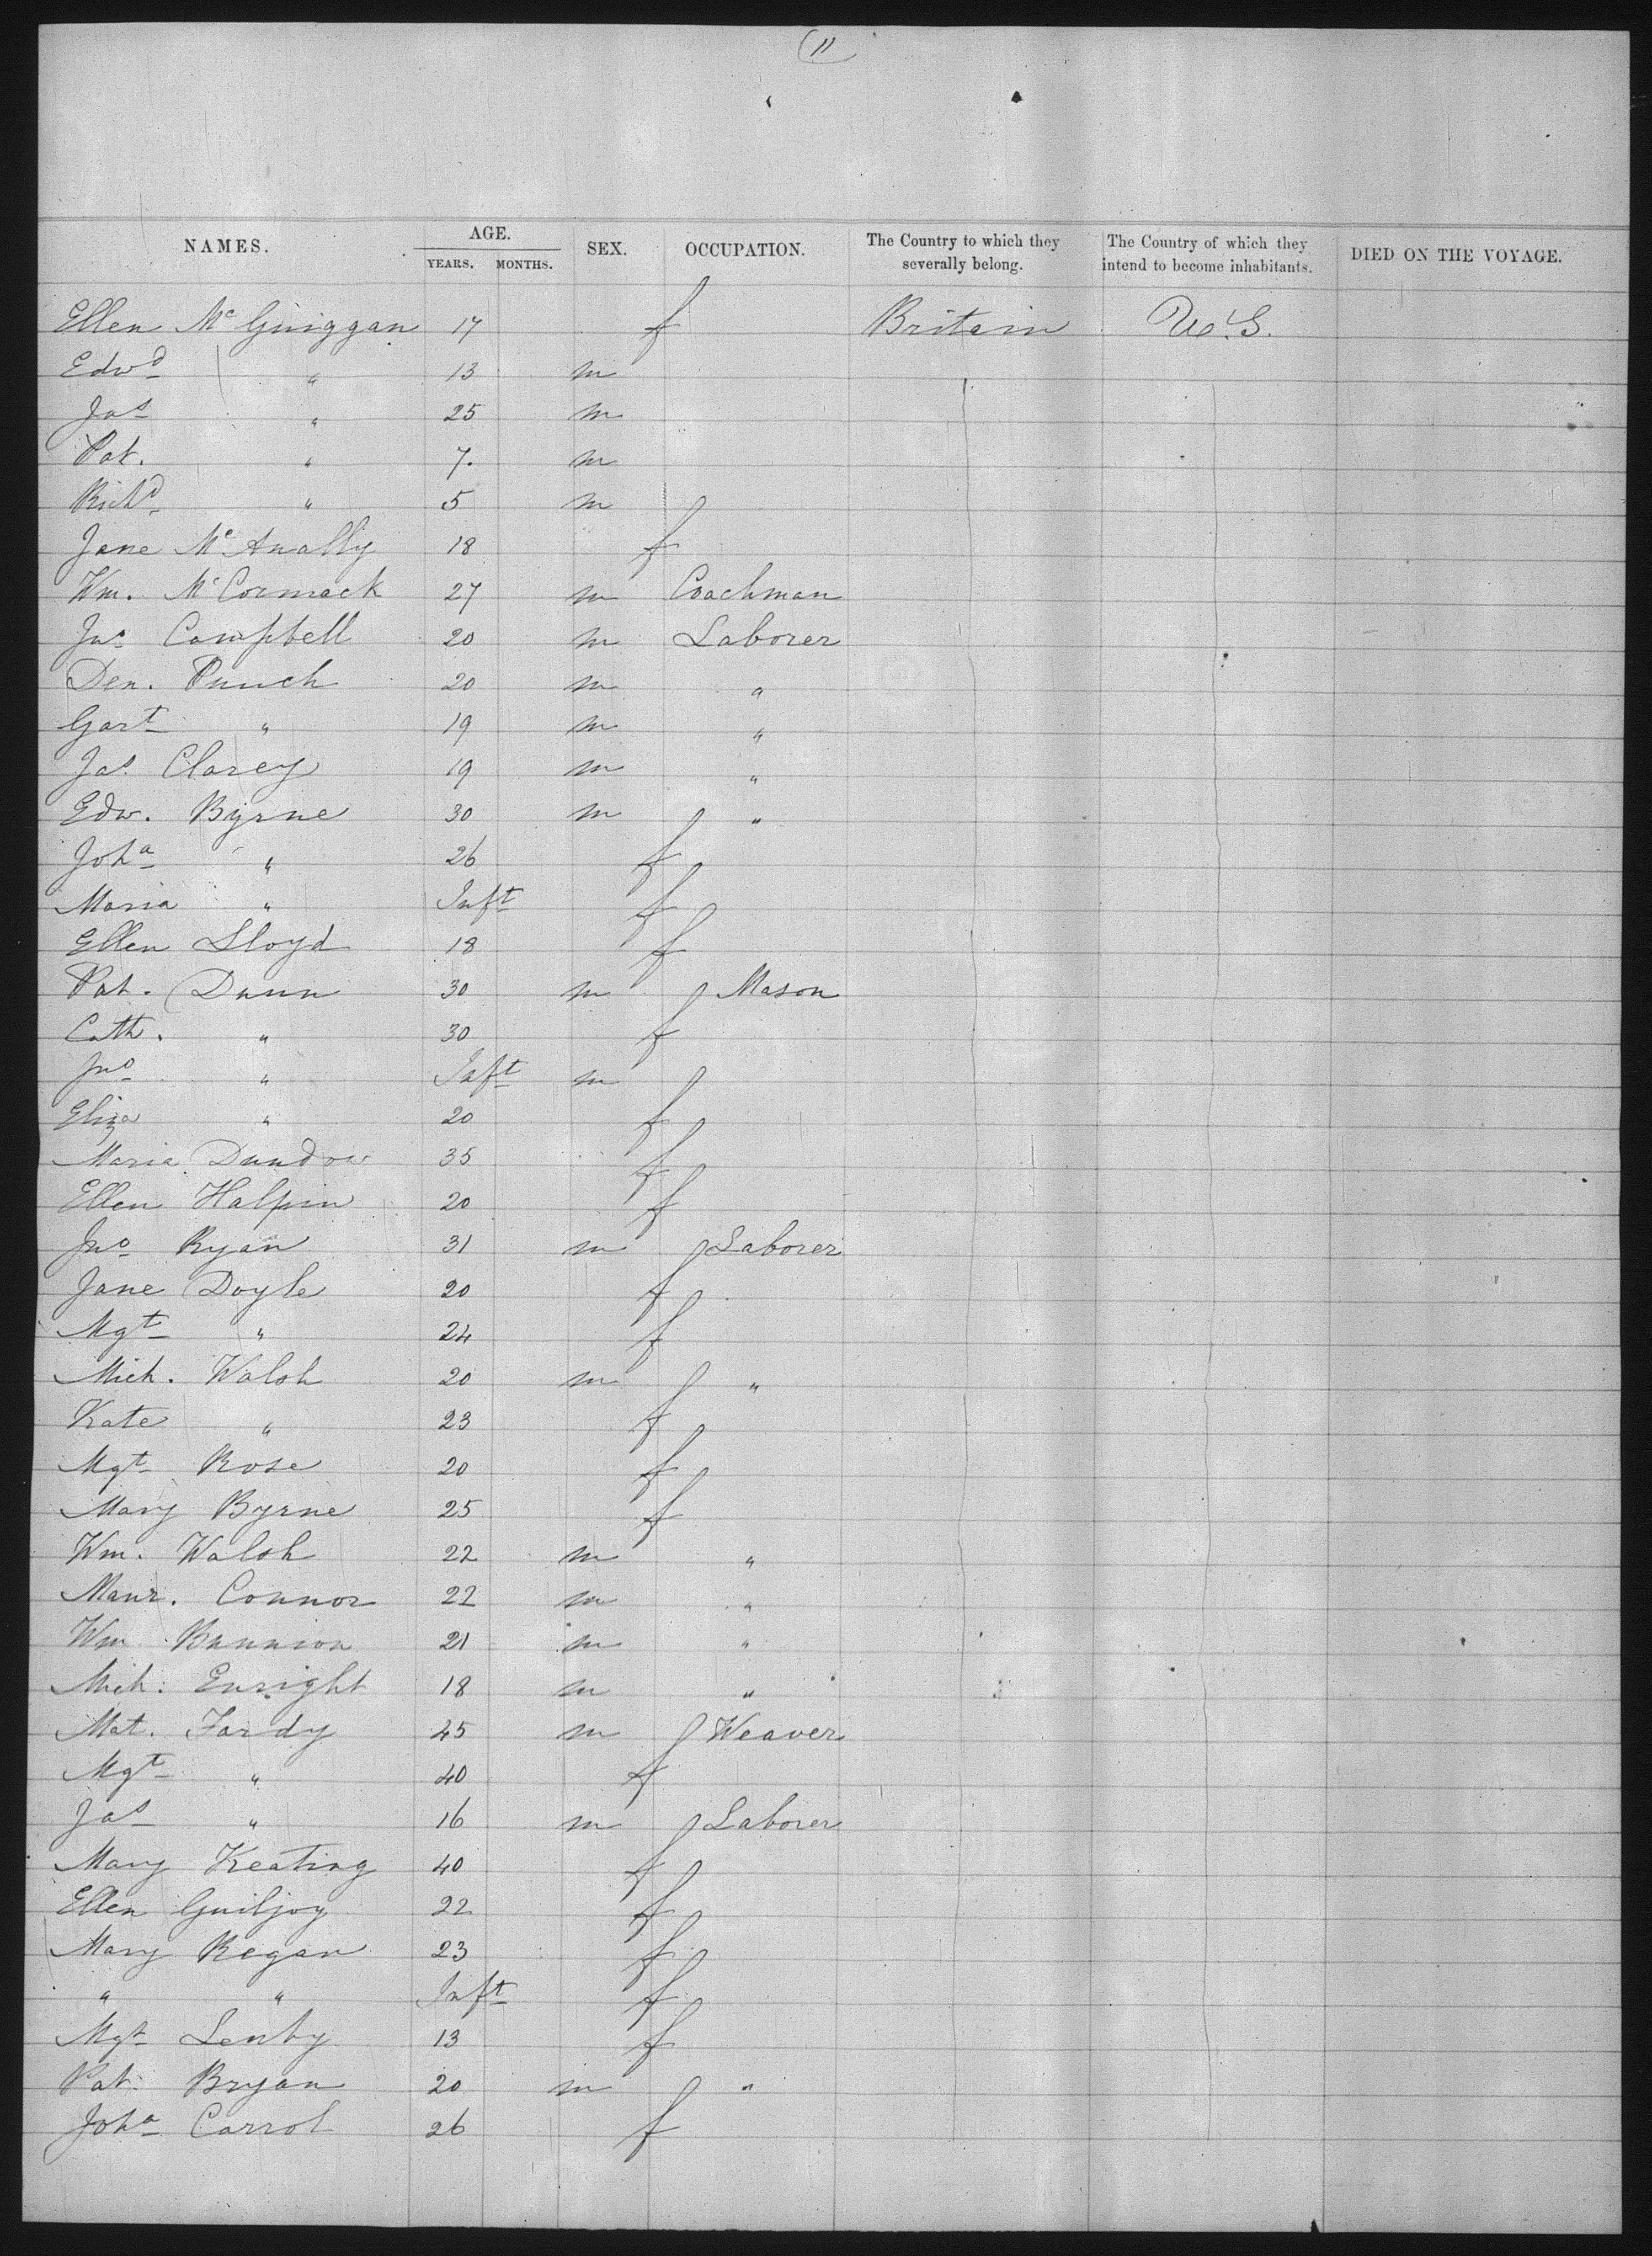 11
NAMES. AGE. YEARS. MONTHS. SEX. OCCUPATION. The Country to which they severally belong. The Country of which they intend to become inhabitants. DIED ON THE VOYAGE.
Ellen McGuiggan 17 f Britain U.S.
Edwd " 13 m
Jas " 25 m
Pat. " 7. m
Richd " 5 m
Jane McAnally 18 f
Wm. McCormack 27 m Coachman
Jno Campbell 20 m Laborer
Den. Punch 20 m "
Gart " 19 m "
Jas. Clarey 19 m "
Edw. Byrne 30 m "
Joha " 26 f
Maria " Inft f
Ellen Lloyd 18 f
Pat. Dunn 30 m Mason
Cath. " 30 f
Jno " Inft m
Eliza " 20 f
Maria Dundow 35 f
Ellen Halpin 20 f
Jno Ryan 31 m Laborer
Jane Doyle 20 f
Mgt " 24 f
Mich. Walsh 20 m "
Kate " 23 f
Mgt Rose 20 f
Mary Byrne 25 f
Wm. Walsh 22 m "
Maur. Connor 22 m "
Wm Bannion 21 m "
Mich. Enright 18 m "
Mat. Fardy 45 m Weaver
Mgt " 40 f
Jas " 16 m Laborer
Mary Keating 40 f
Ellen Guiljoy 22 f
Mary Regan 23 f
" " Inft f
Mgt 13 f
Pat. Bryan 20 m "
Joha Carrol 26 f